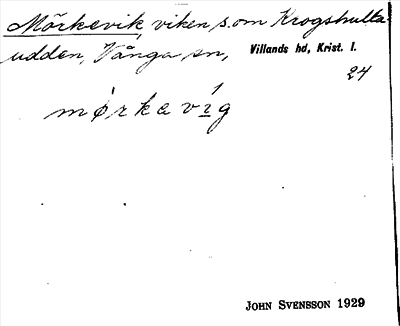 Mörkevik, viken s. om Krogshulta
udden, Vånga sn, Villands hd, Krist. l.
24
mørkavíg
JOHN SVENSSON 1929